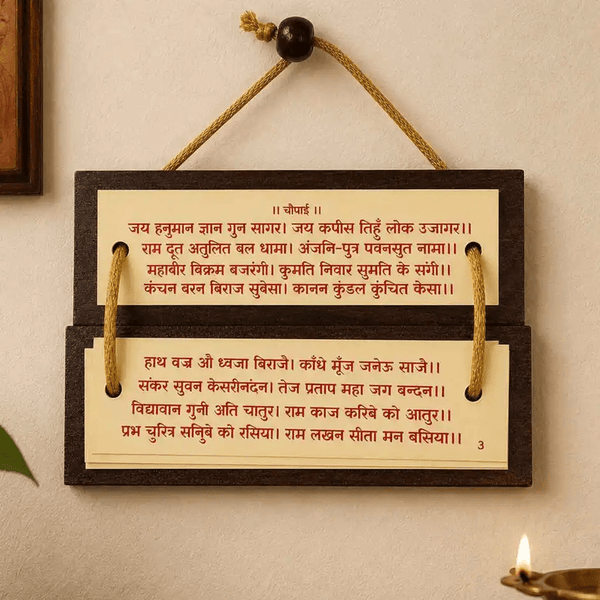 ॥ चौपाई ॥
जय हनुमान ज्ञान गुन सागर। जय कपीस तिहुँ लोक उजागर।।
राम दूत अतुलित बल धामा। अंजनि-पुत्र पवनसुत नामा।।
महाबीर विक्रम बजरंगी। कुमति निवार सुमति के संगी।।
कंचन बरन बिराज सुबेसा। कानन कुंडल कुंचित केसा।।
हाथ वज्र औ ध्वजा बिराजै। काँधे मूँज जनेऊ साजै।।
संकर सुवन केसरीनंदन। तेज प्रताप महा जग बन्दन।।
विद्यावान गुनी अति चातुर। राम काज करिबे को आतुर।।
प्रभ चुरित्र सनुिबे को रसिया। राम लखन सीता मन बसिया।।
3